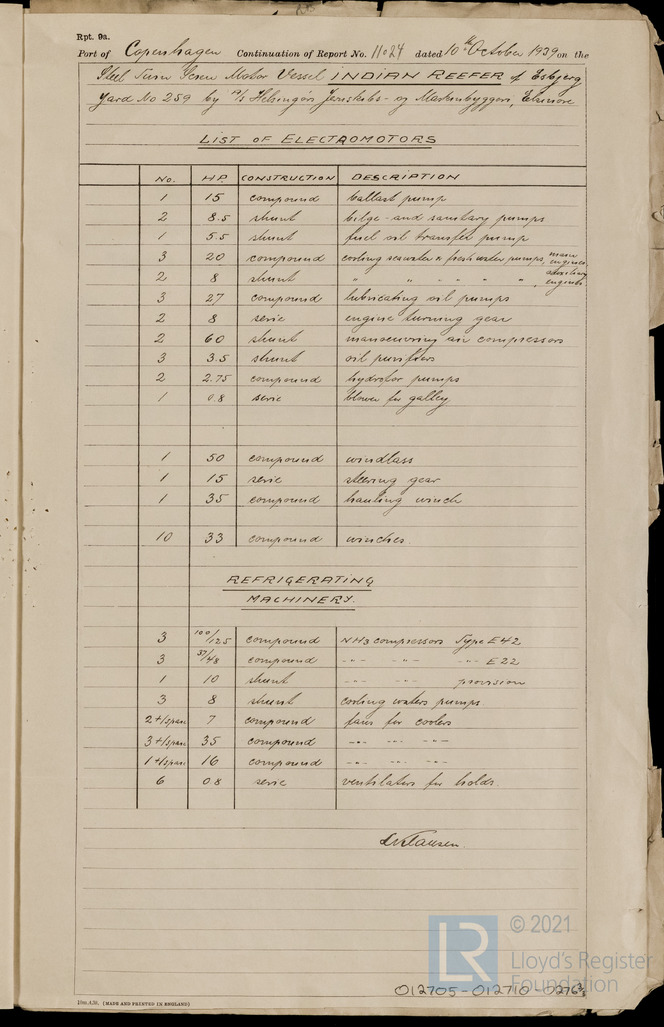 Rpt. 9a.
Port of Copenhagen Continuation of Report No. 11024 dated 10th October 1939 on the
Steel Twin Screw Motor Vessel INDIAN REEFER of Esbjerg
Yard No 259 by A/s Helsingörs Jernskibs- og Maskinbyggeri, Elsinore
LIST OF ELECTROMOTORS
No. HP CONSTRUCTION DESCRIPTION
1 15 compound ballast pump
2 8.5 shunt bilge- and sanitary pumps
1 5.5 shunt fuel oil transfer pump
3 20 compound cooling seawater & freshwater pumps, main engines
2 8 shunt " " " " " , auxiliary engines
3 27 compound lubricating oil pumps
2 8 serie engine turning gear
2 60 shunt manoeuvring air compressors
3 3.5 shunt oil purifiers
2 2.75 compound hydrofor pumps
1 0.8 serie blower for galley
1 50 compound windlass
1 15 serie steering gear
1 35 compound hauling winch
10 33 compound winches.
REFRIGERATING
MACHINERY.
3 100/125 compound NH3 compressors Type E42
3 37/48 compound -"- -"- -"- E22
1 10 shunt -"- -"- provision
3 8 shunt cooling waters pumps
2+1spare 7 compound fans for coolers
3+1spare 35 compound -"- -"- -"-
1+1spare 16 compound -"- -"- -"-
6 0.8 serie ventilators for holds.
© 2021
LR
Lloyd's Register
Foundation
012705-012710-0276
(MADE AND PRINTED IN ENGLAND)